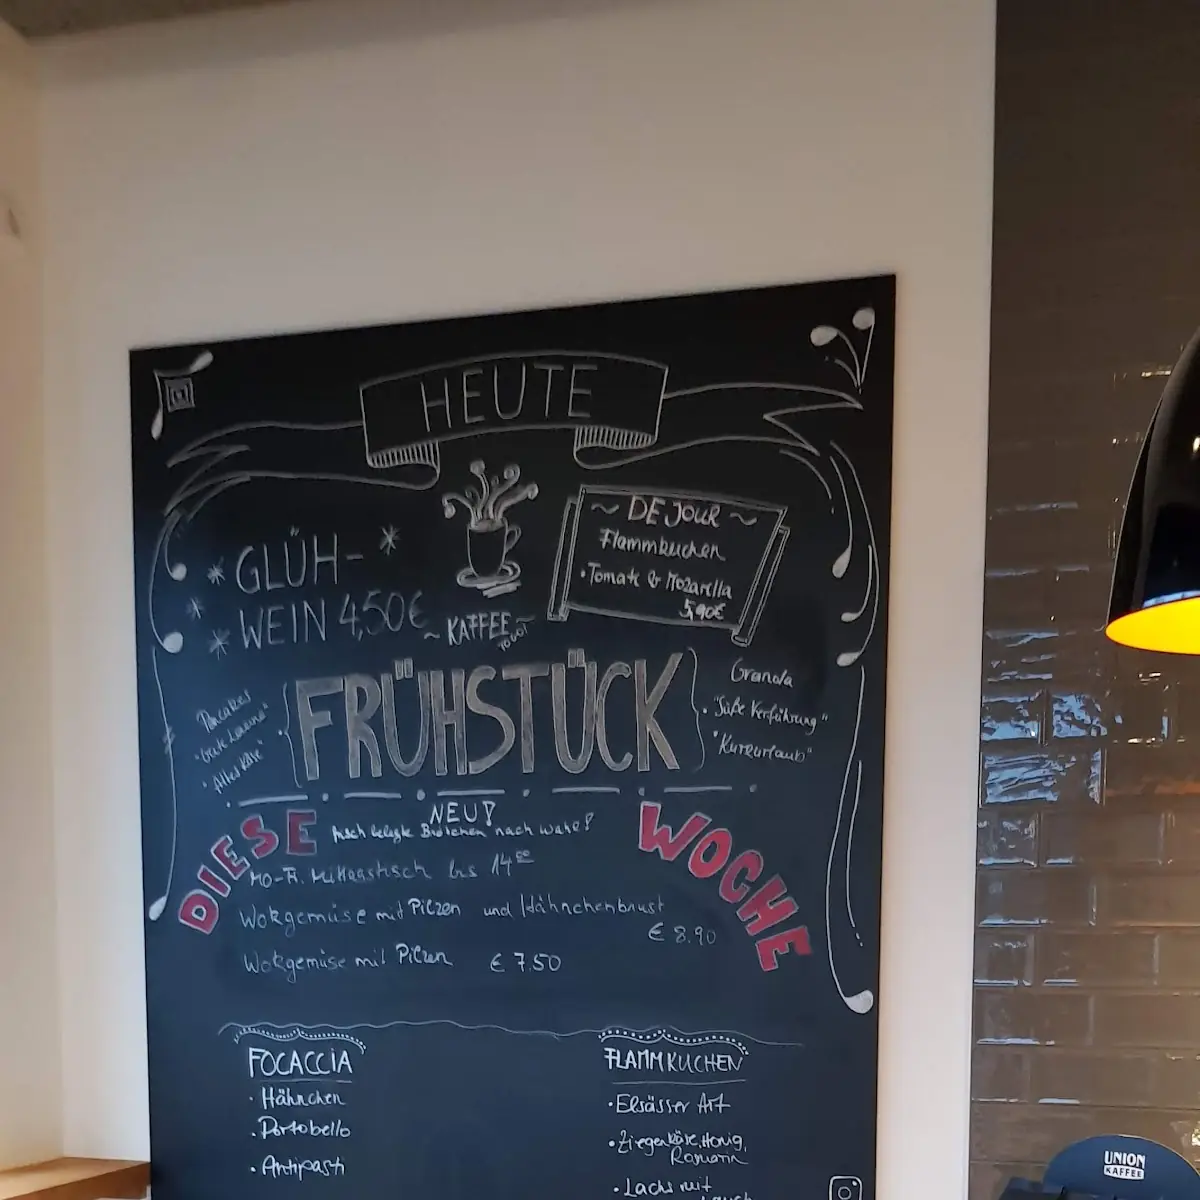 HEUTE
* GLÜH- *
* WEIN 4,50€
~ KAFFEE ~
TO GO!
~ DE JOUR ~
Flammkuchen
• Tomate & Mozarella
5,90€
FRÜHSTÜCK
Pancakes
"Gute Laune"
• "Alles Käse"
Granola
• "Süße Verführung"
"Kurzurlaub"
NEU!
frisch belegte Brötchen nach Wahl!
DIESE WOCHE
Mo-Fr. Mittagstisch bis 14⁰⁰
Wokgemüse mit Pilzen und Hähnchenbrust
€ 8.90
Wokgemüse mit Pilzen € 7.50
FOCACCIA
• Hähnchen
• Portobello
• Antipasti
FLAMMKUCHEN
• Elsässer Art
• Ziegenkäse, Honig,
Rosmarin
• Lachs mit
UNION
KAFFEE